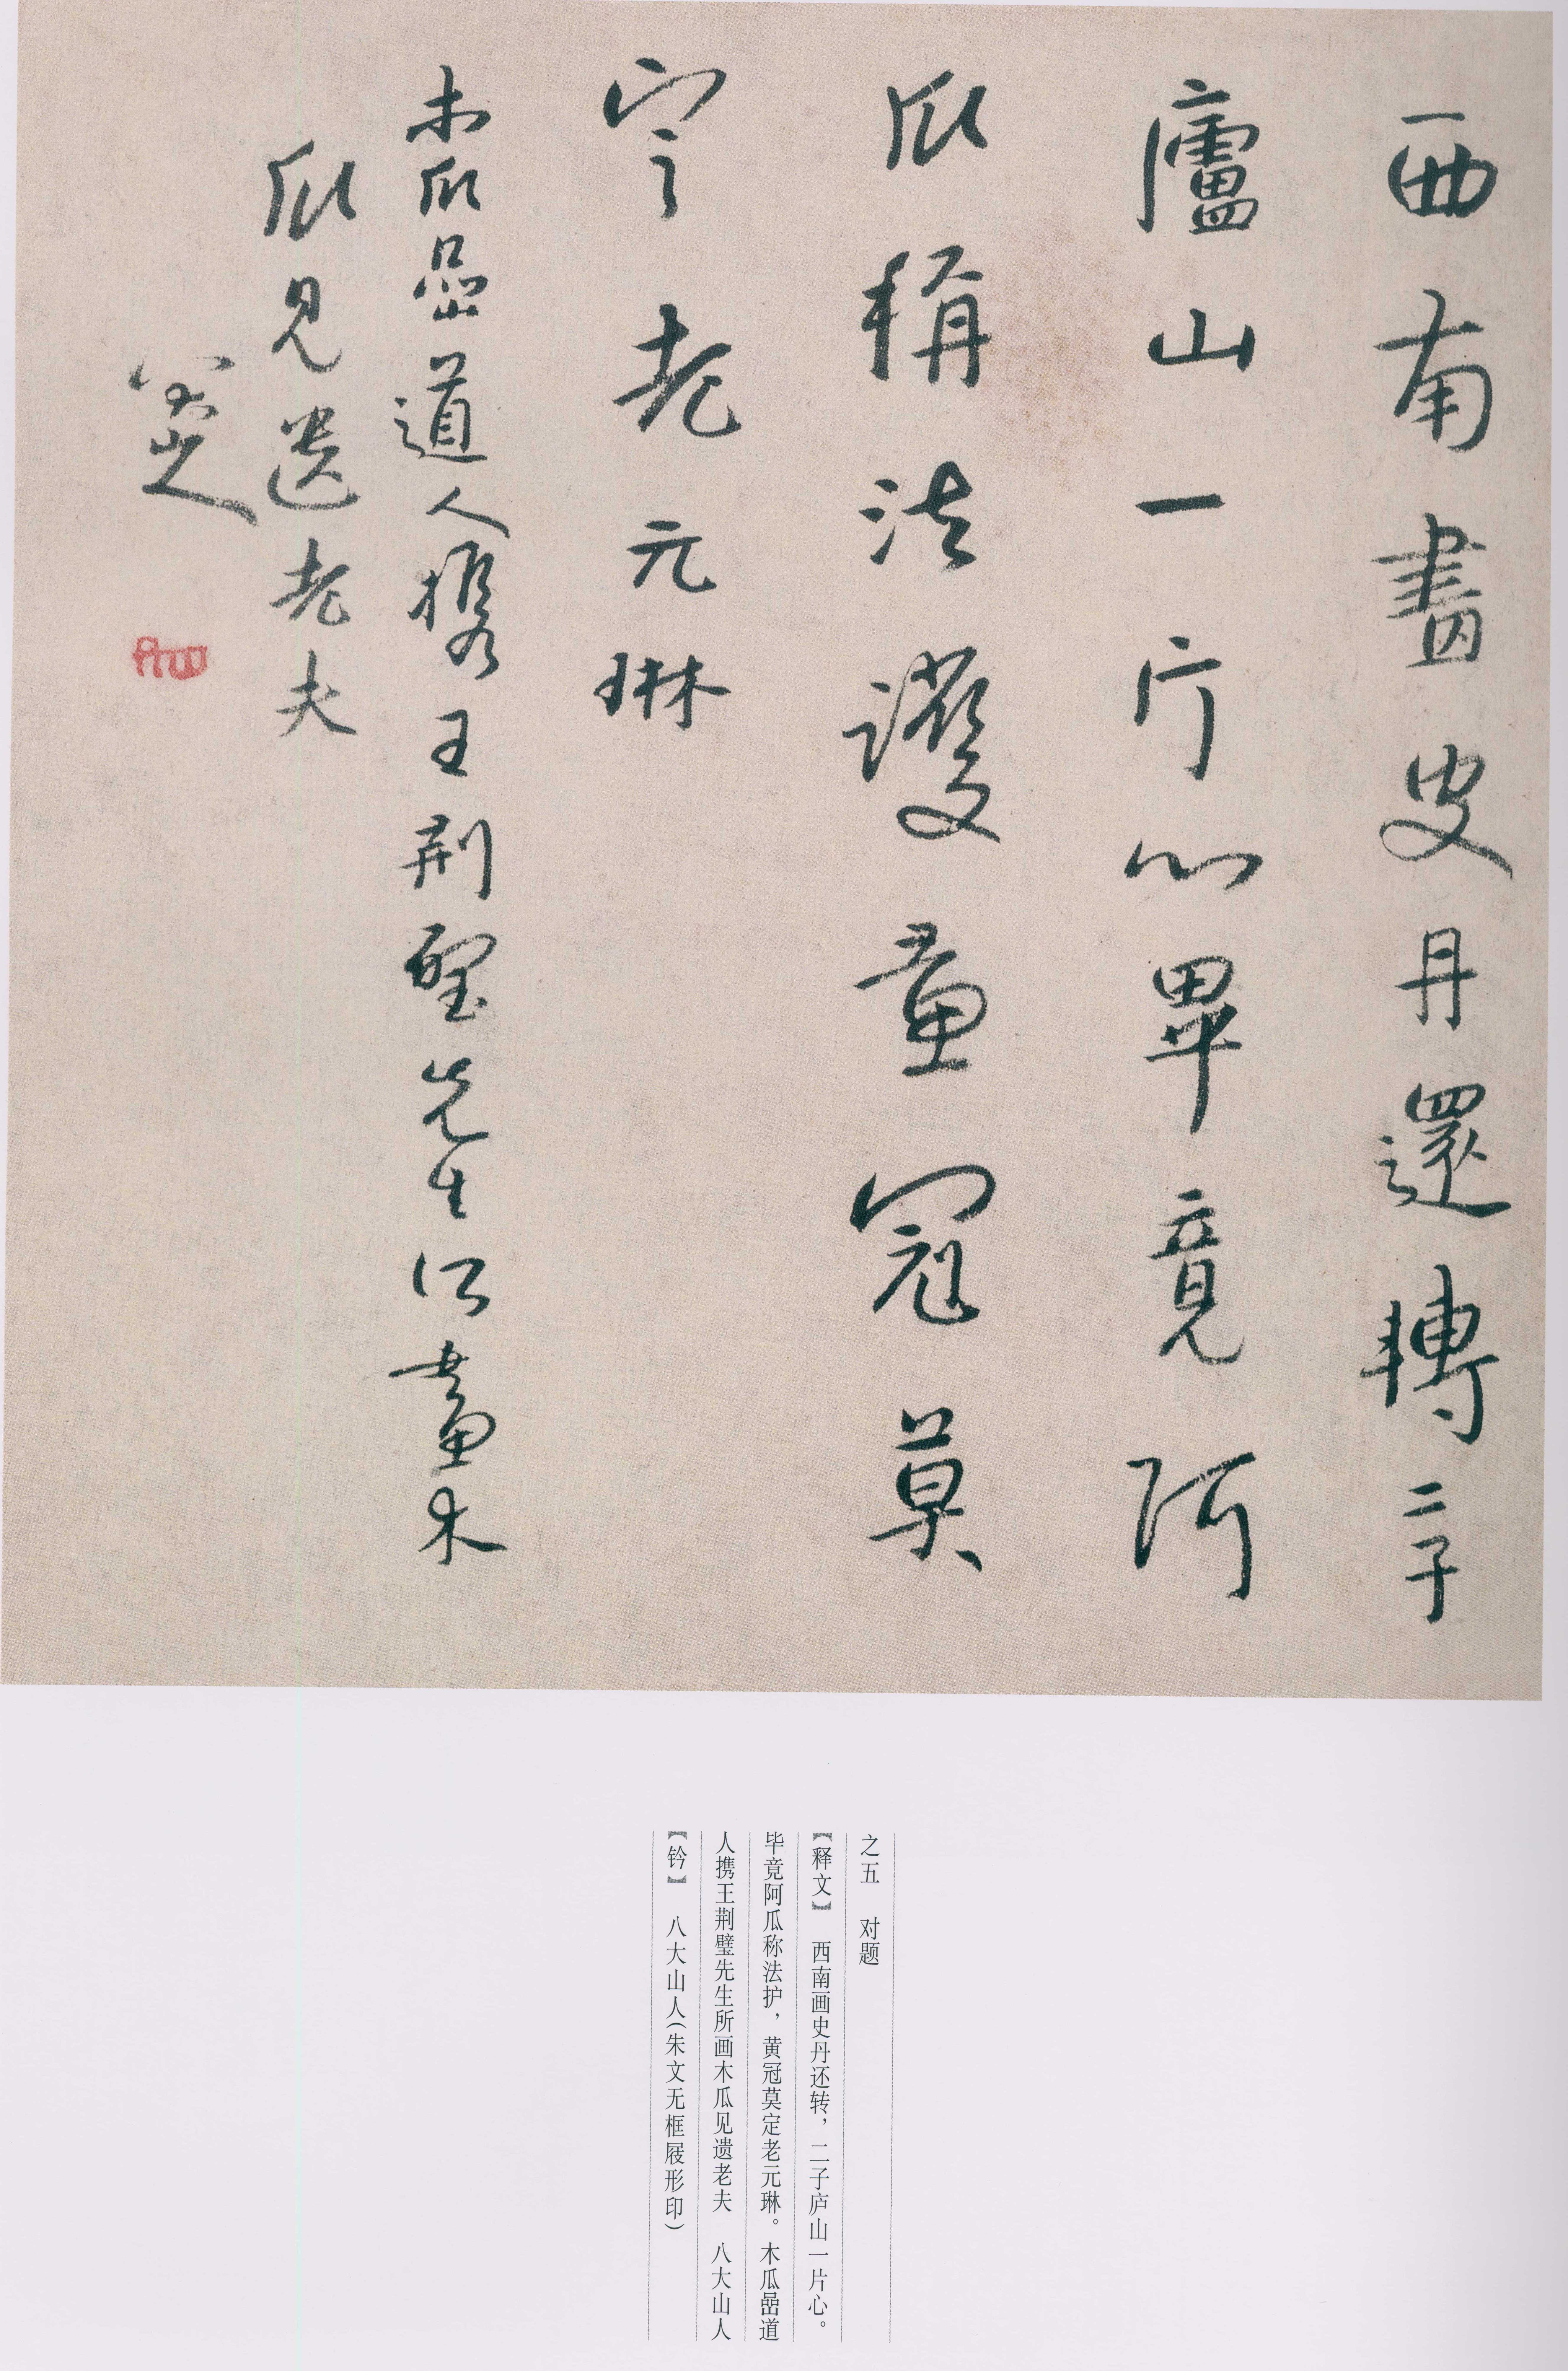 西南畫史丹還轉二子
廬山一片心畢竟阿
瓜稱法護黃冠莫
定老元琳
木瓜嵒道人攜王荆璧先生所畫木
瓜見遺老夫
八大山人
之五 对题
【释文】 西南画史丹还转，二子庐山一片心。
毕竟阿瓜称法护，黄冠莫定老元琳。木瓜嵒道
人携王荆璧先生所画木瓜见遗老夫 八大山人
【钤】 八大山人（朱文无框屐形印）